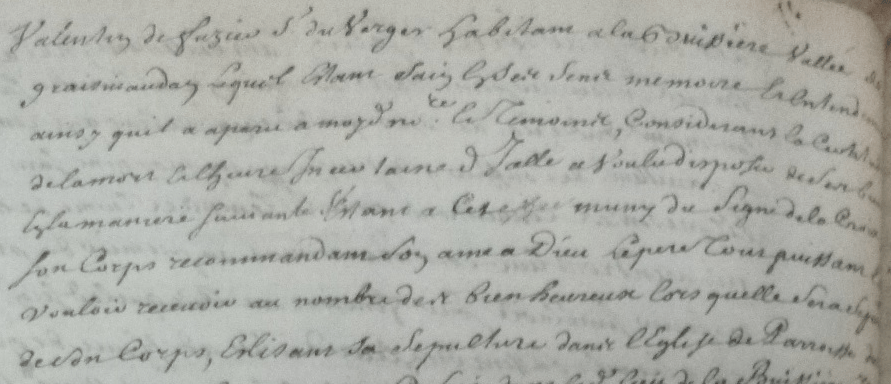 Valentin de Fuzier Sr du Verger habitant a la Buissiere Vallée de
graisinaudan Lequel Estant Sain En Ses Sens memoire & Entend
ainsy quil a aparu a moyd nore & Temoins, Considerant la Certitu
delamort & lheure Incertaine d'Icelle a Voulu disposer de Ses b
En la maniere Suivante Estant a Cet muny du Signe de la Croix
Son Corps recommandant Son ame a Dieu Le pere Tout puissant
Vouloir recevoir au nombre des bien heureux lors quelle Sera Sepa
de Sdn Corps, Elisant Sa Sepulture dans l'Eglise de Parroisse
lieu de la Buissi